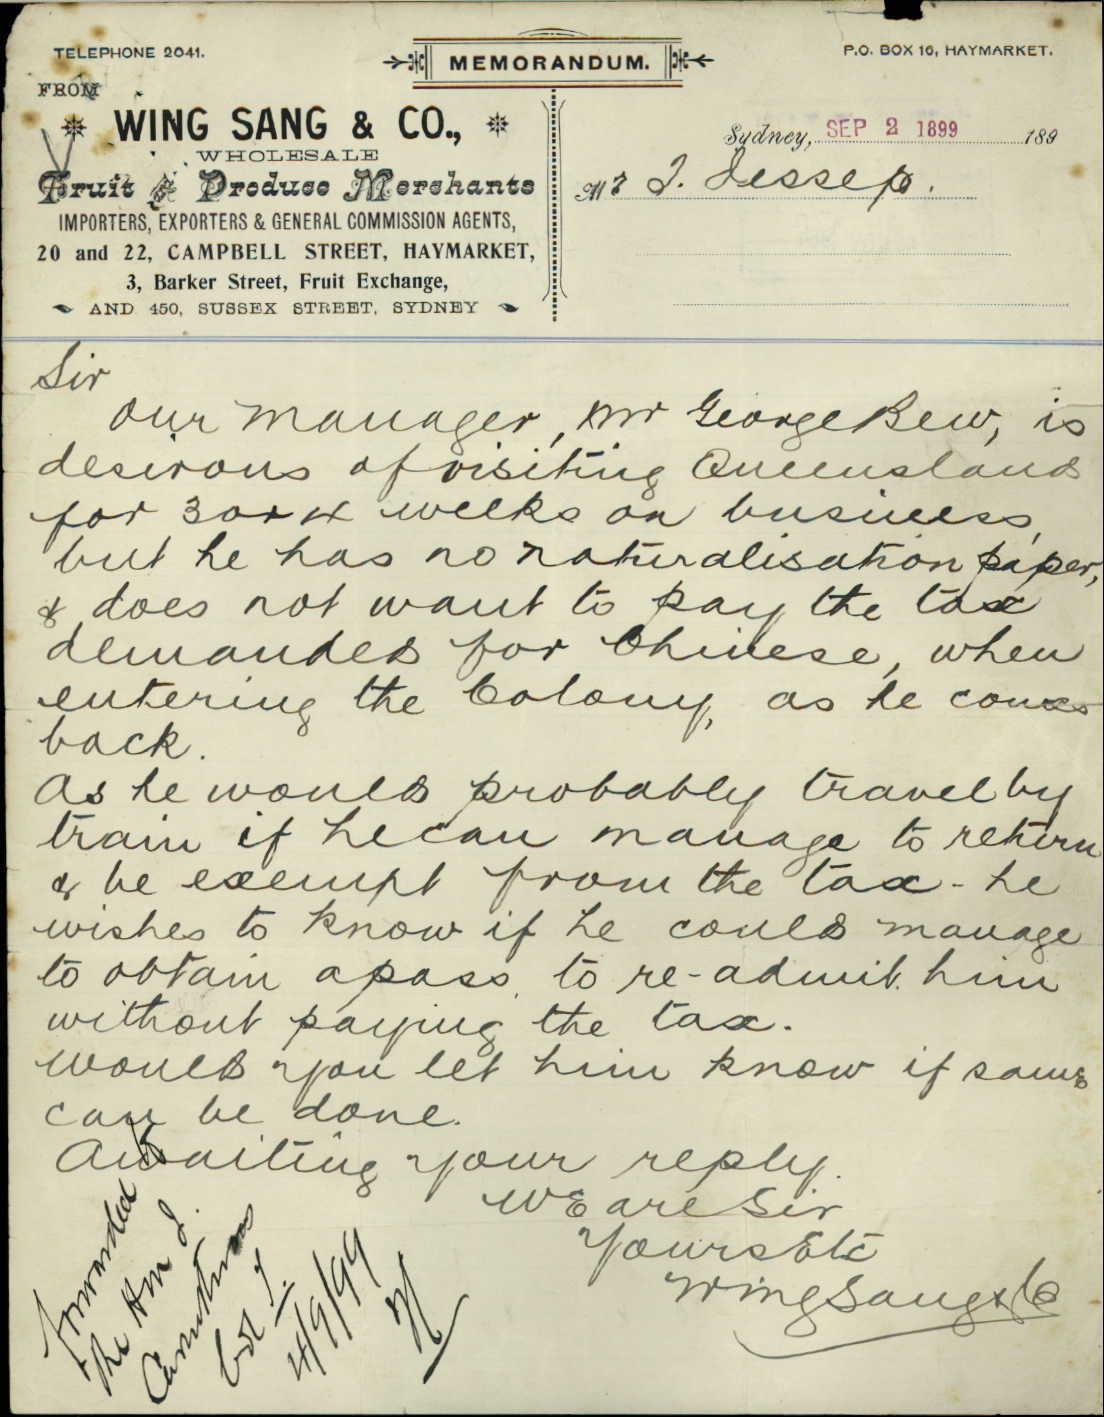 TELEPHONE 2041.
MEMORANDUM.
P.O. BOX 16, HAYMARKET.
FROM
WING SANG & CO.,
WHOLESALE
Fruit & Produce Merchants
IMPORTERS, EXPORTERS & GENERAL COMMISSION AGENTS,
20 and 22, CAMPBELL STREET, HAYMARKET,
3, Barker Street, Fruit Exchange,
AND 450, SUSSEX STREET, SYDNEY
Sydney, SEP 2 1899 189
Mr J. Jessep.
Sir
Our manager, Mr George Bew, is
desirous of visiting Queensland
for 3 or 4 weeks on business,
but he has no naturalisation paper,
& does not want to pay the tax
demanded for Chinese, when
entering the Colony, as he comes
back.
As he would probably travel by
train if he can manage to return
& be exempt from the tax - he
wishes to know if he could manage
to obtain a pass to re-admit him
without paying the tax.
Would you let him know if same
can be done.
Awaiting your reply.
We are Sir
Yours Etc
Wing Sang & Co
Forwarded to
the Hon J.
Carruthers
Col. J.
4/9/99